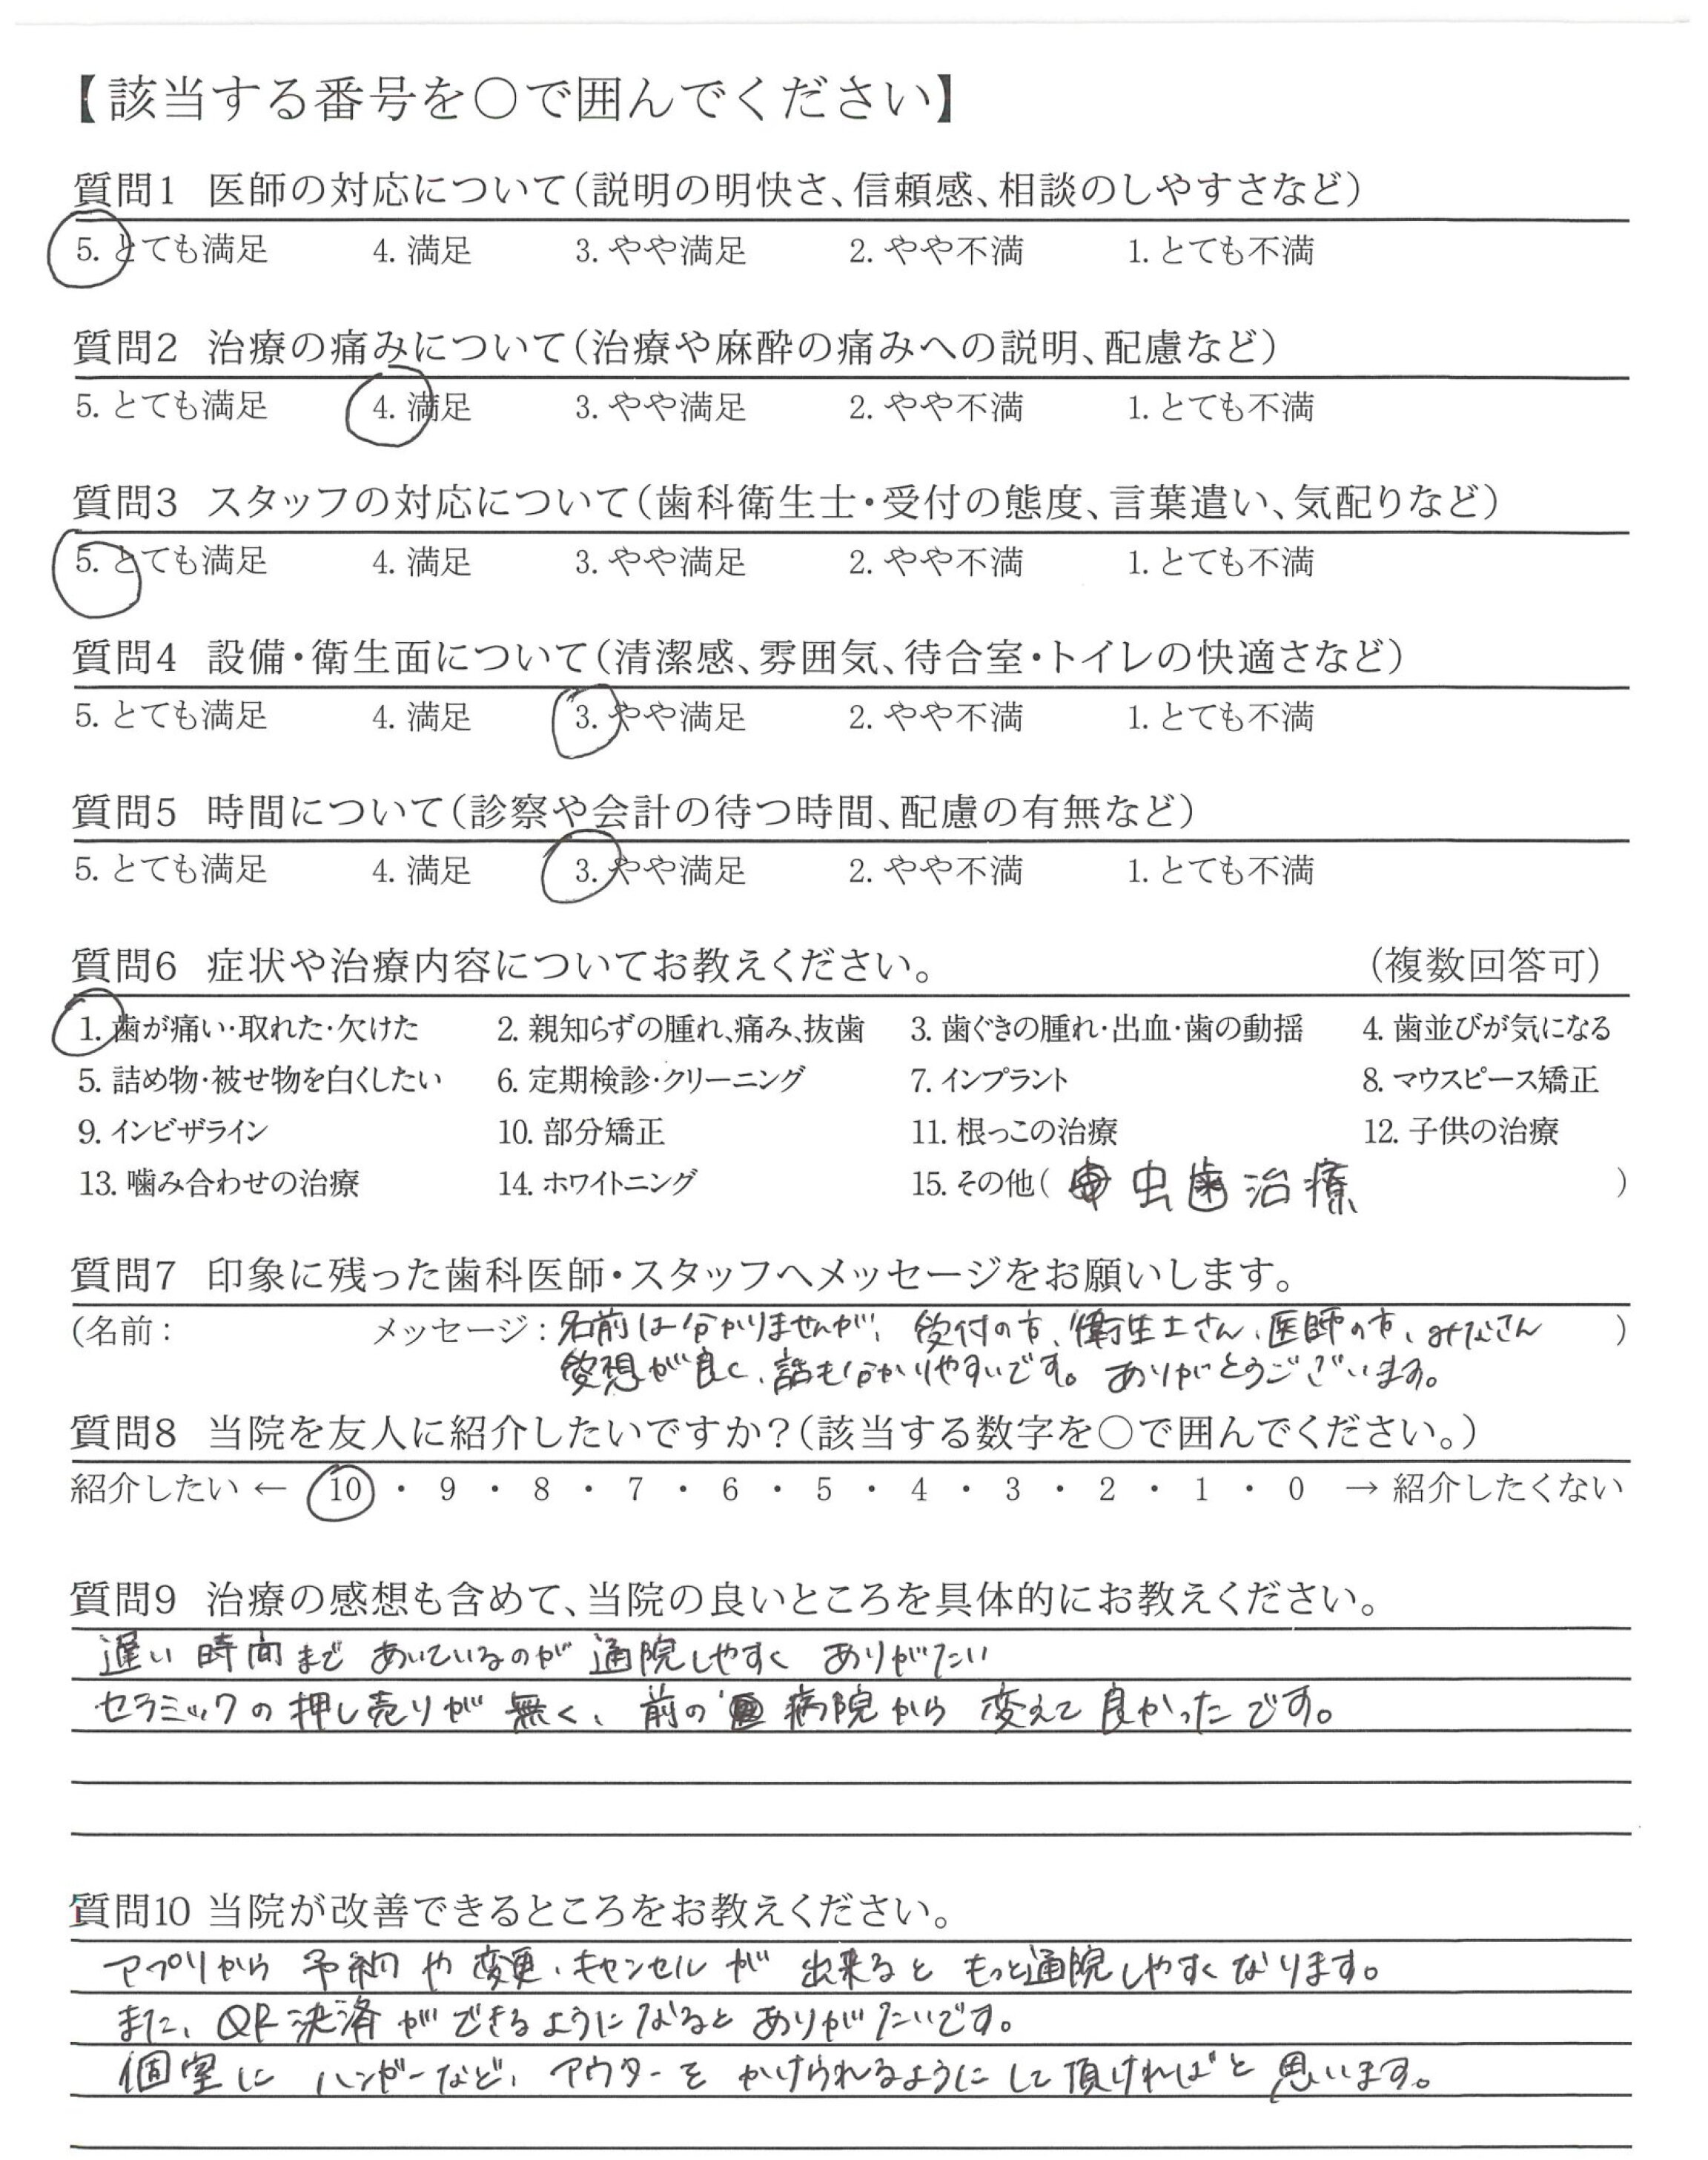 【該当する番号を〇で囲んでください】
質問1 医師の対応について(説明の明快さ、信頼感、相談のしやすさなど)
5. とても満足 4. 満足 3. やや満足 2. やや不満 1. とても不満
質問2 治療の痛みについて(治療や麻酔の痛みへの説明、配慮など)
5. とても満足 4. 満足 3. やや満足 2. やや不満 1. とても不満
質問3 スタッフの対応について(歯科衛生士・受付の態度、言葉遣い、気配りなど)
5. とても満足 4. 満足 3. やや満足 2. やや不満 1. とても不満
質問4 設備・衛生面について(清潔感、雰囲気、待合室・トイレの快適さなど)
5. とても満足 4. 満足 3. やや満足 2. やや不満 1. とても不満
質問5 時間について(診察や会計の待つ時間、配慮の有無など)
5. とても満足 4. 満足 3. やや満足 2. やや不満 1. とても不満
質問6 症状や治療内容についてお教えください。 (複数回答可)
1. 歯が痛い・取れた・欠けた 2. 親知らずの腫れ、痛み、抜歯 3. 歯ぐきの腫れ・出血・歯の動揺 4. 歯並びが気になる
5. 詰め物・被せ物を白くしたい 6. 定期検診・クリーニング 7. インプラント 8. マウスピース矯正
9. インビザライン 10. 部分矯正 11. 根っこの治療 12. 子供の治療
13. 噛み合わせの治療 14. ホワイトニング 15. その他( 虫歯治療 )
質問7 印象に残った歯科医師・スタッフへメッセージをお願いします。
(名前: メッセージ: 名前は分かりませんが、受付の方、衛生士さん、医師の方、みなさん )
愛想が良く、話も分かりやすいです。ありがとうございます。
質問8 当院を友人に紹介したいですか?(該当する数字を〇で囲んでください。)
紹介したい ← 10 ・ 9 ・ 8 ・ 7 ・ 6 ・ 5 ・ 4 ・ 3 ・ 2 ・ 1 ・ 0 → 紹介したくない
質問9 治療の感想も含めて、当院の良いところを具体的にお教えください。
遅い時間まであいているのが通院しやすくありがたい
セラミックの押し売りが無く、前の病院から変えて良かったです。
質問10 当院が改善できるところをお教えください。
アプリから予約や変更、キャンセルが出来るともっと通院しやすくなります。
また、QR決済ができるようになるとありがたいです。
個室にハンガーなど、アウターをかけられるようにして頂ければと思います。